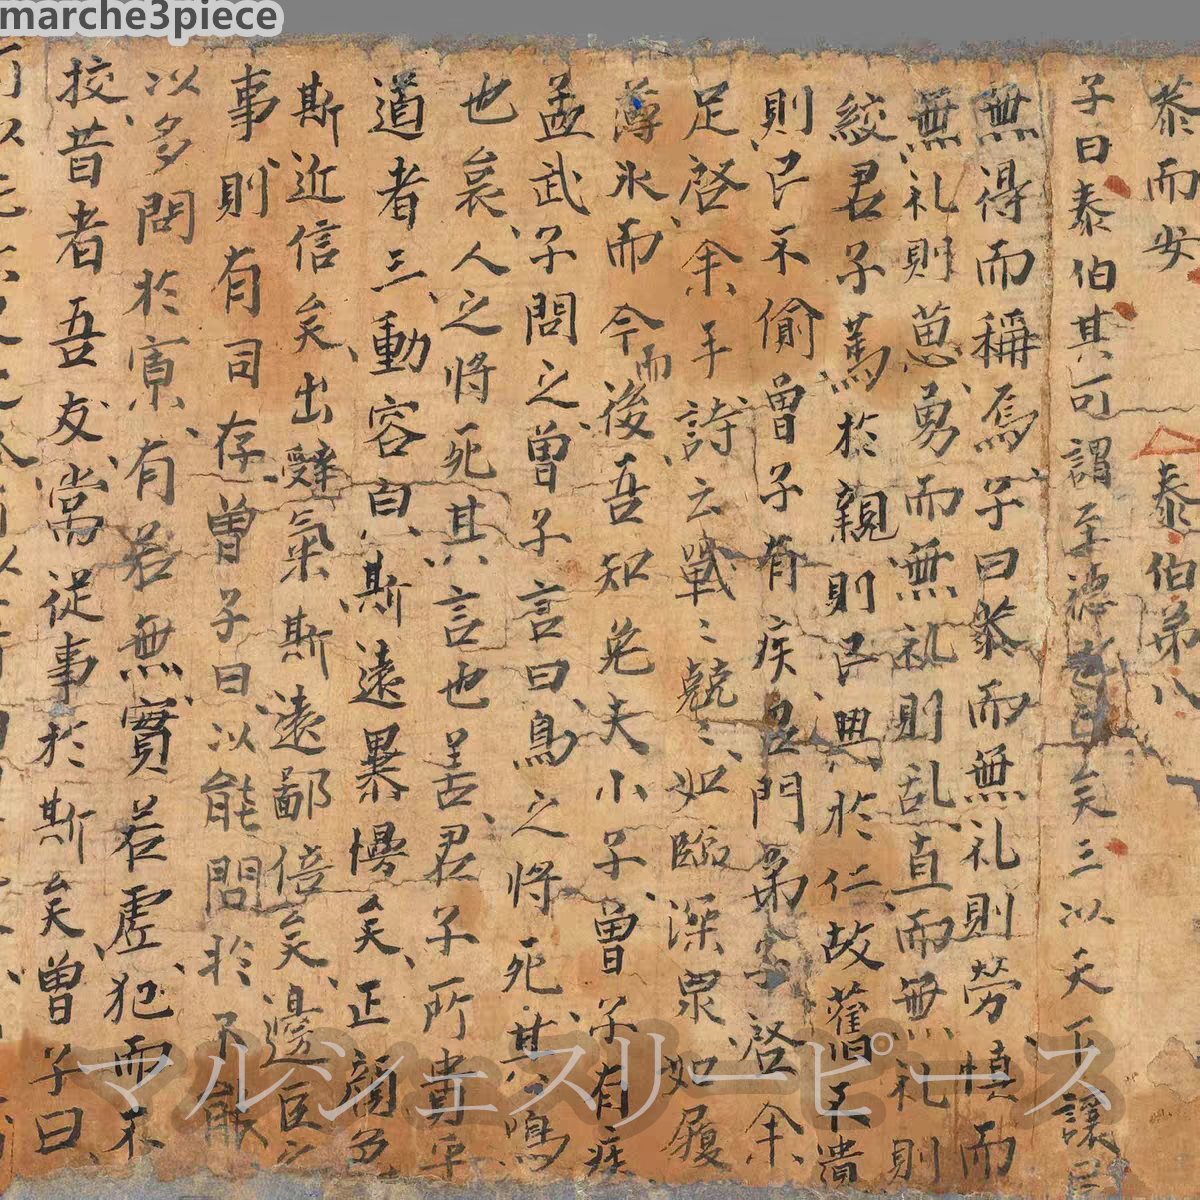 marche3piece
恭而安 泰伯弟八
子曰泰伯其可謂至德也已矣三以天下讓民
無得而稱焉子曰恭而無礼則劳慎而
無礼則葸勇而無礼則乱直而無礼則
絞君子篤於親則民興於仁故舊不遺
則民不偷曾子有疾召門弟子啓余
足啓余手詩云戰〻兢〻如臨深泉如履
薄氷而今而後吾知免夫小子曾子有疾
孟武子問之曾子言曰鳥之將死其鳴
也哀人之將死其言也善君子所貴乎
道者三動容皃斯遠暴慢矣正顔色
斯近信矣出辭氣斯斯遠鄙倍矣邊豆之
事則有司存曾子曰以能問於不能
以多問於寡有若無實若虛犯而不
挍昔者吾友常從事於斯矣曾子曰
マルシェスリーピース